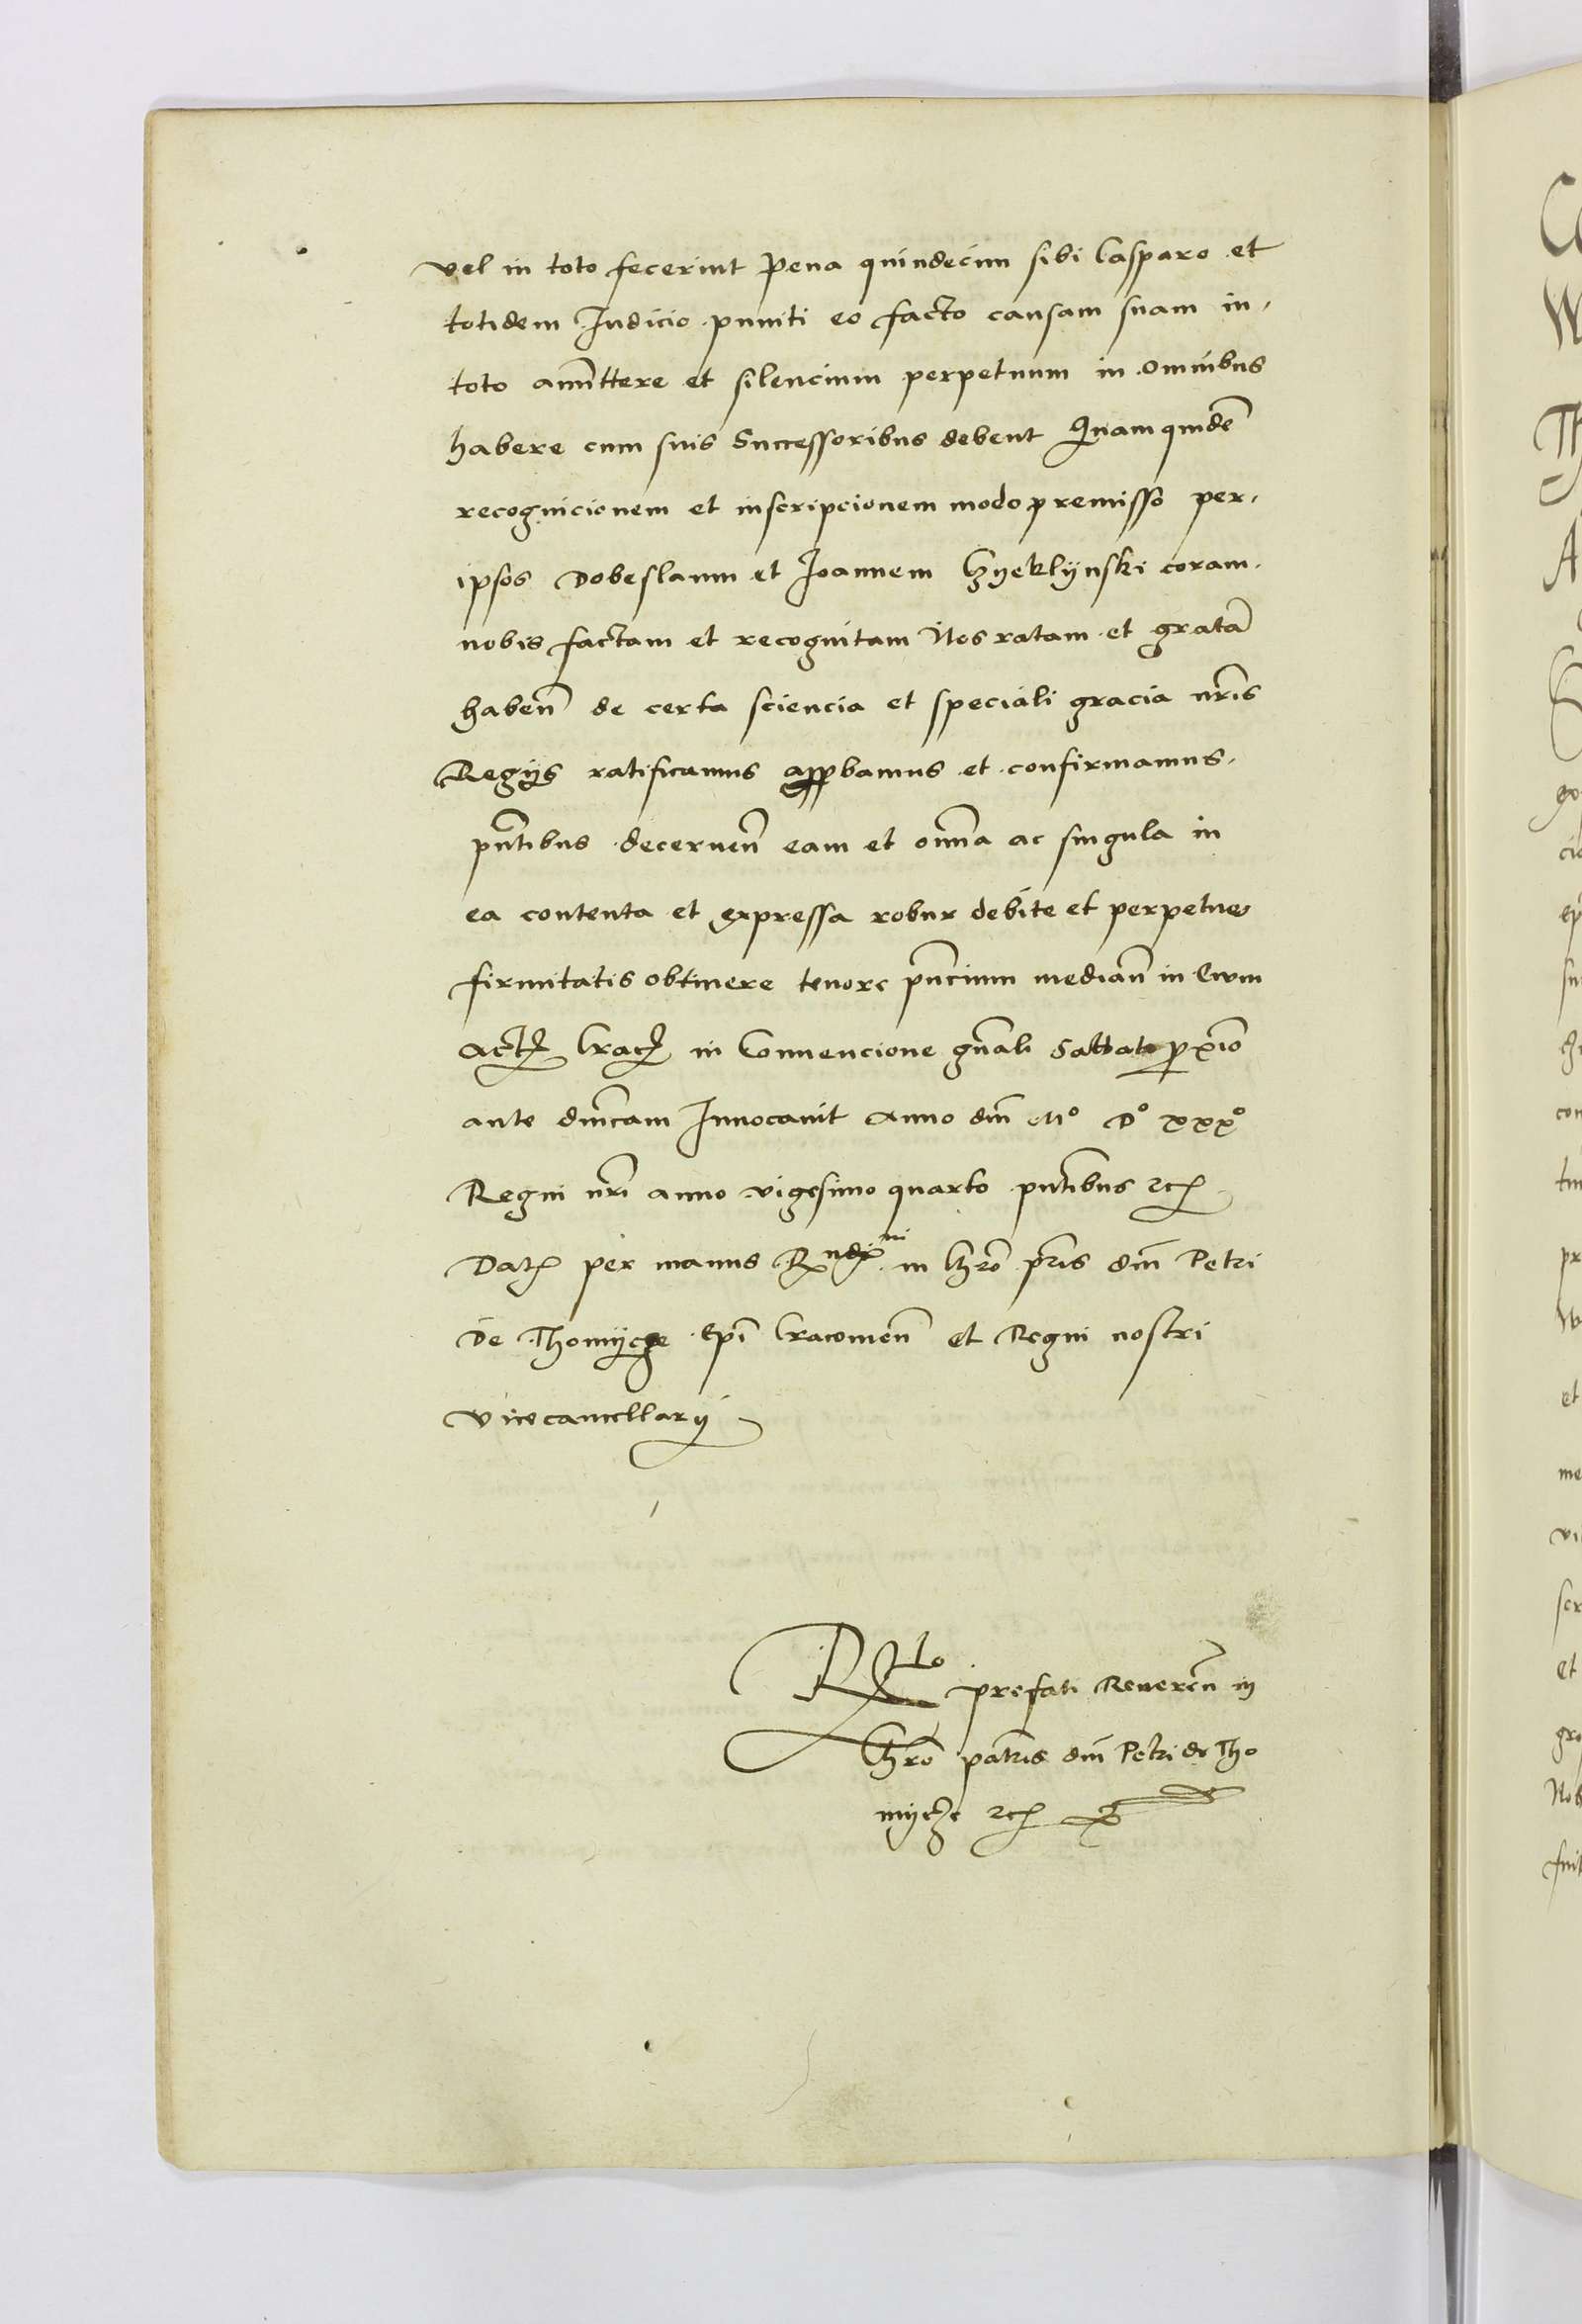 vel in toto fecerint Pena quindecim sibi Casparo et
totidem Iudicio puniti eo facto causam suam in
toto amittere et silencium perpetuum in omnibus
habere cum suis Successoribus debent Quamquidē
recognicionem et inscripcionem modo premisso per
ipsos Dobeslaum et Joannem Czyeklynski coram
nobis factam et recognitam Nos ratam et gratā
habeñ de certa sciencia et speciali gracia nr̄is
Regijs ratificamus appbamus et confirmamus
pn̄tibus decerneñ eam et om̄ia ac singula in
ea contenta et expressa robur debite et perpetue
firmitatis obtinere tenore pn̄cium median̄ in Evum
Act Crac in Convencione gn̄ali Sabbato proximo
ante dn̄icam Invocavit Anno dn̄i Mº Dº xxxº
Regni nr̄i anno vigesimo quarto pn̄tibus etc
Dat per manus Rndi in Chr̄o pr̄is dn̄i Petri
De Thomycze Epī Cracovieñ et Regni nostri
vicecancellarij
Rlo prefati Reveren̄ in
Chr̄o patris dn̄i Petri de Tho
mycze etc